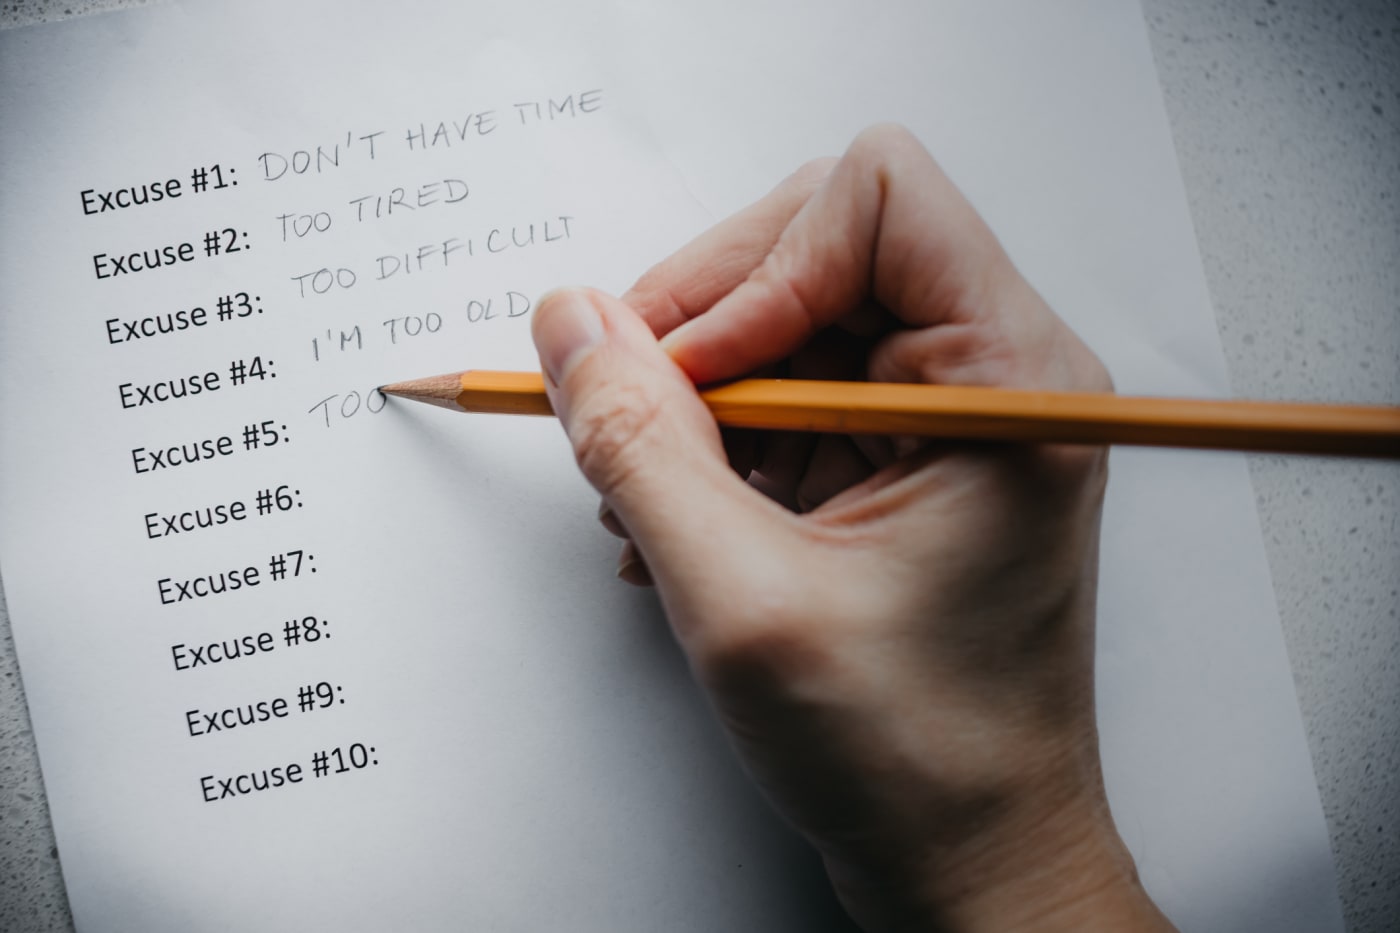 Excuse #1: DON'T HAVE TIME
Excuse #2: TOO TIRED
Excuse #3: TOO DIFFICULT
Excuse #4: I'M TOO OLD
Excuse #5: TOO
Excuse #6:
Excuse #7:
Excuse #8:
Excuse #9:
Excuse #10: